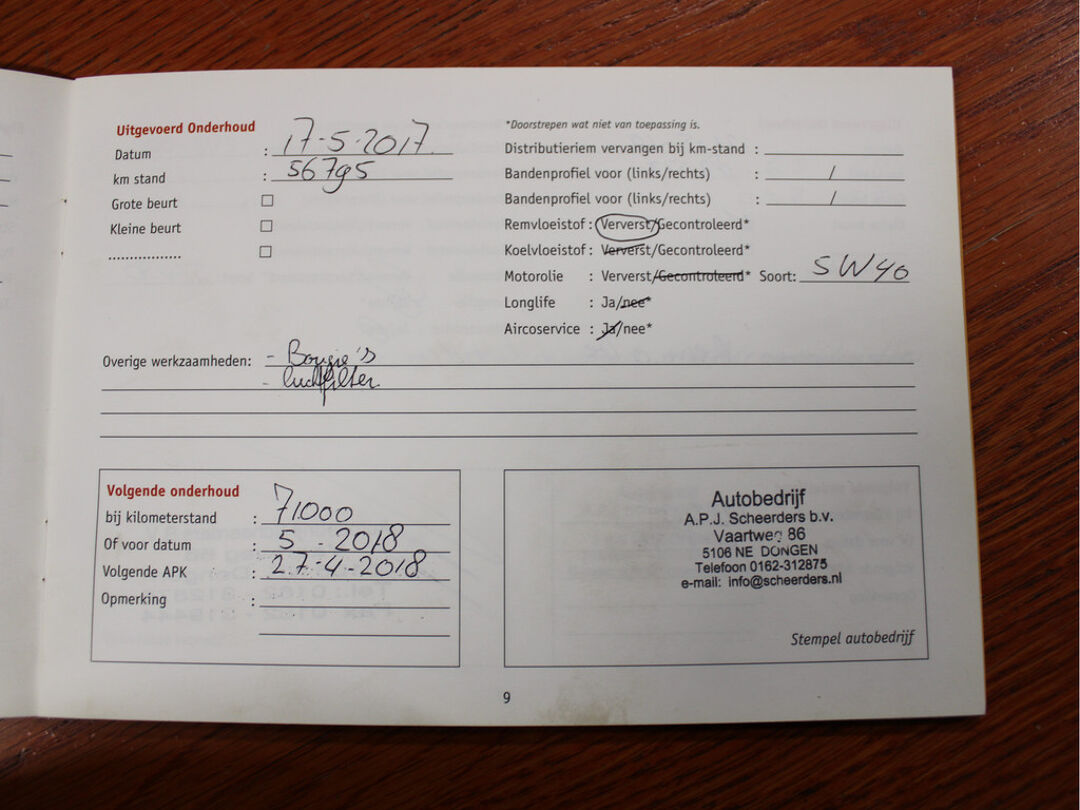 Uitgevoerd Onderhoud
Datum : 17-5-2017
km stand : 56795
Grote beurt
Kleine beurt
.................
*Doorstrepen wat niet van toepassing is.
Distributieriem vervangen bij km-stand :
Bandenprofiel voor (links/rechts) : /
Bandenprofiel voor (links/rechts) : /
Remvloeistof : Ververst/Gecontroleerd*
Koelvloeistof : Ververst/Gecontroleerd*
Motorolie : Ververst/Gecontroleerd* Soort: 5W40
Longlife : Ja/nee*
Aircoservice : Ja/nee*
Overige werkzaamheden: - Bougie's
- luchtfilter
Volgende onderhoud
bij kilometerstand : 71000
Of voor datum : 5 - 2018
Volgende APK : 27-4-2018
Opmerking :
Autobedrijf
A.P.J. Scheerders b.v.
Vaartweg 86
5106 NE DONGEN
Telefoon 0162-312875
e-mail: info@scheerders.nl
Stempel autobedrijf
9